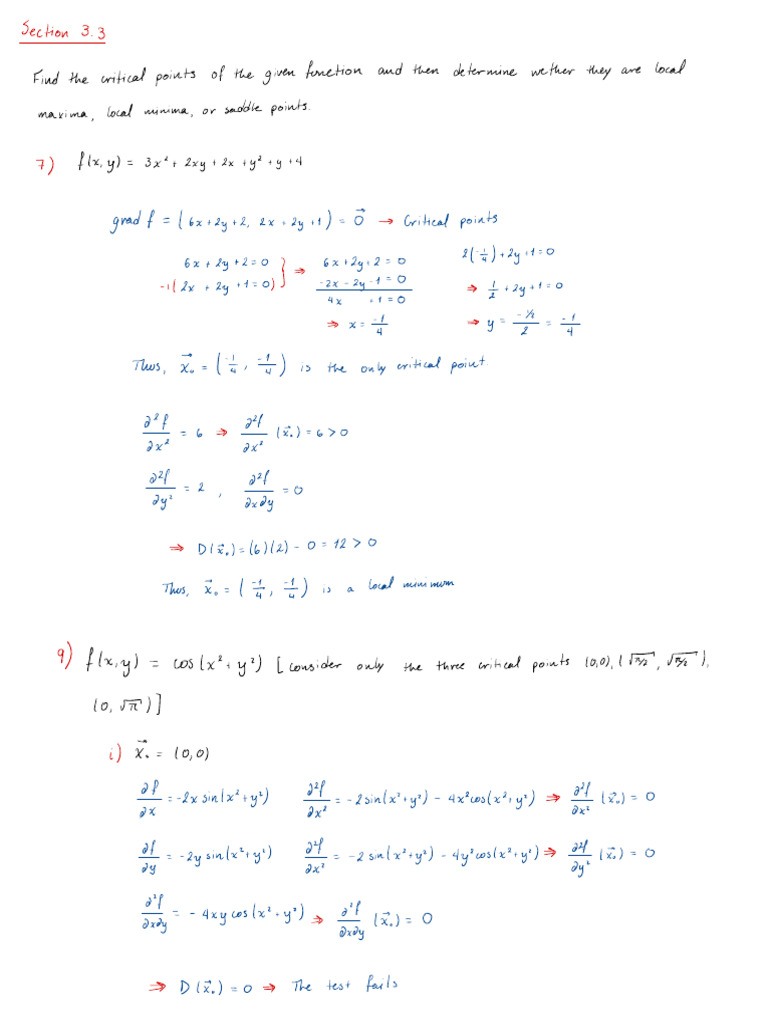 Section 3.3
Find the critical points of the given function and then determine wether they are local
maxima, local minima, or saddle points.
7) f(x,y) = 3x² + 2xy + 2x + y² + y + 4
grad f = (6x+2y+2, 2x+2y+1) = 0⃗ → Critical points
6x + 2y + 2 = 0 } ⇒ 6x + 2y + 2 = 0 2(-1/4) + 2y + 1 = 0
-1(2x + 2y + 1 = 0) -2x - 2y - 1 = 0 ⇒ 1/2 + 2y + 1 = 0
4x + 1 = 0
⇒ x = -1/4 ⇒ y = (-1/2)/2 = -1/4
Thus, x⃗₀ = (-1/4, -1/4) is the only critical point.
∂²f/∂x² = 6 ⇒ ∂²f/∂x² (x⃗₀) = 6 > 0
∂²f/∂y² = 2 , ∂²f/∂x∂y = 0
⇒ D(x⃗₀) = (6)(2) - 0 = 12 > 0
Thus, x⃗₀ = (-1/4, -1/4) is a local minimum
9) f(x,y) = cos(x² + y²) [consider only the three critical points (0,0), (√π/2, √π/2),
(0, √π)]
i) x⃗₀ = (0,0)
∂f/∂x = -2x sin(x² + y²) ∂²f/∂x² = -2 sin(x² + y²) - 4x² cos(x² + y²) ⇒ ∂²f/∂x² (x⃗₀) = 0
∂f/∂y = -2y sin(x² + y²) ∂²f/∂x² = -2 sin(x² + y²) - 4y² cos(x² + y²) ⇒ ∂²f/∂y² (x⃗₀) = 0
∂²f/∂x∂y = -4xy cos(x² + y²) ⇒ ∂²f/∂x∂y (x⃗₀) = 0
⇒ D(x⃗₀) = 0 ⇒ The test fails